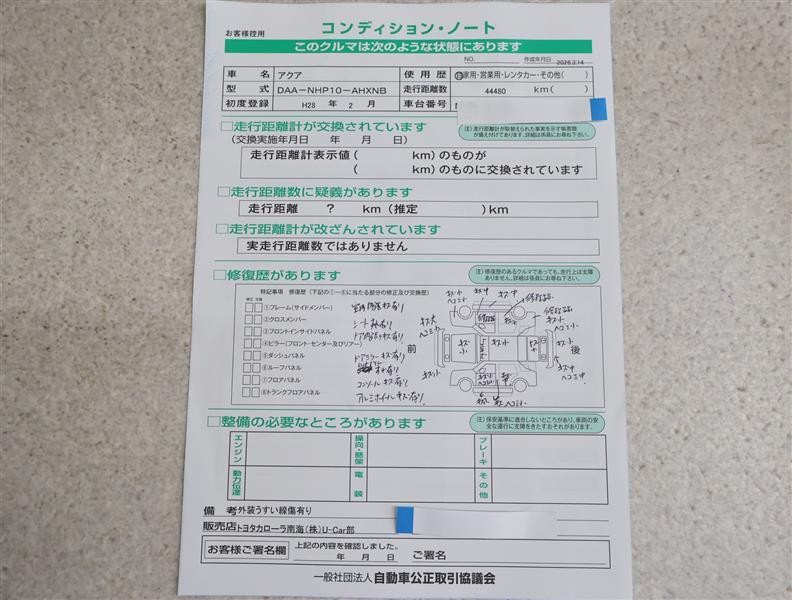 お客様控用
コンディション・ノート
このクルマは次のような状態にあります
NO. 作成年月日 2026.3.14
車名 アクア 使用歴 自家用・営業用・レンタカー・その他( )
型式 DAA-NHP10-AHXNB 走行距離数 44480 km( )
初度登録 H28 年 2 月 車台番号
□走行距離計が交換されています
(交換実施年月日 年 月 日)
注)走行距離計が取替えられた事実を示す帳票類が備え付けてあります。詳細は係員にお尋ね下さい。
走行距離計表示値( km)のものが
( km)のものに交換されています
□走行距離数に疑義があります
走行距離 ? km (推定 )km
□走行距離計が改ざんされています
実走行距離数ではありません
□修復歴があります
注)修復歴のあるクルマであっても、走行上は支障ありません。詳細は係員にお尋ね下さい。
特記事項 修復歴(下記の①~⑧に当たる部分の修正及び交換歴)
修正 交換
①フレーム(サイドメンバー)
②クロスメンバー
③フロントインサイドパネル
④ピラー(フロント・センター及びリアー)
⑤ダッシュパネル
⑥ルーフパネル
⑦フロアパネル
⑧トランクフロアパネル
ドアミラーキズ有り
コンソールキズ有り
アルミホイールキズ有り
前
後
□整備の必要なところがあります
注)保安基準に適合しないところがあり、車両の安全な運行に支障をきたすおそれがあります。
エンジン 操向・懸架 ブレーキ
動力伝達 電装 その他
備考 外装うすい線傷有り
販売店 トヨタカローラ南海(株)U-Car部
お客様ご署名欄 上記の内容を確認しました。
年 月 日 ご署名
一般社団法人 自動車公正取引協議会